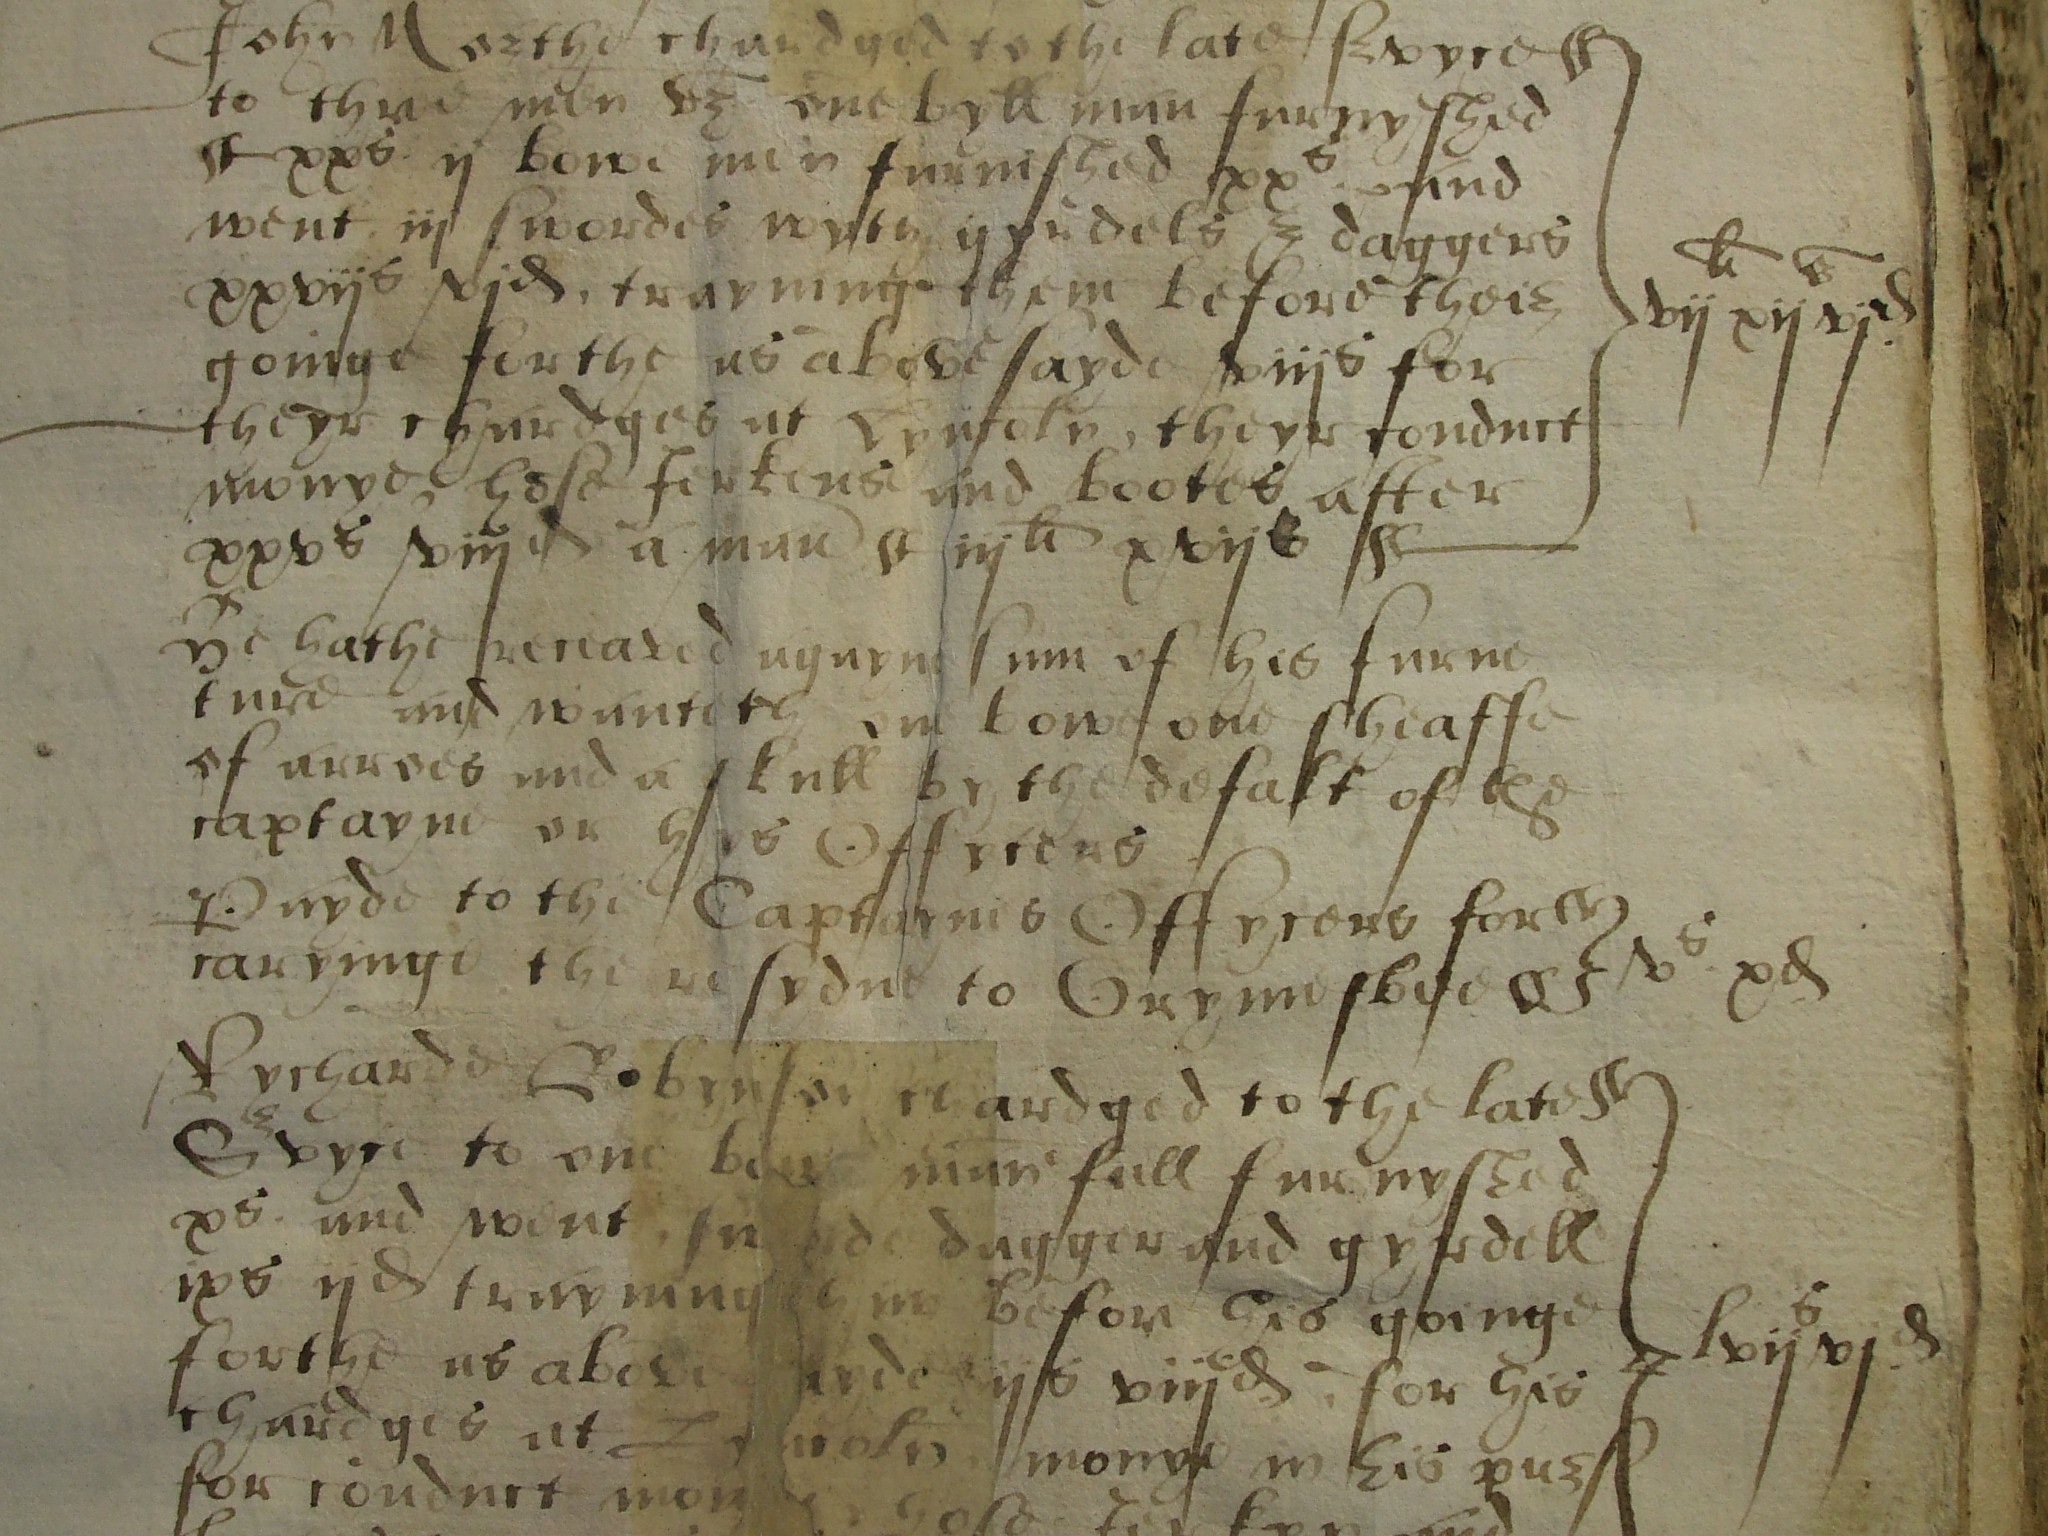 John Northe chardged to the late s'vyce
to thre men vz one byll man furnyshed
xxs ij bowe men furnished xxs and
went iij swordes wyth gyrdels & daggers
xxvijs vjd, trayning them before their
goinge forthe as abovesayde viijs for
theyr chardges at Lyncoln, theyr conduct
monye, hose Jerkens and bootes after
xxvs viijd a man iijli xvijs
vijli xijs vjd
He hathe receaved agayne sum of his furne
ture and wanteth one bowe one sheaffe
of arroes and a skull by the defalt of the
captayne or hys Offycers
Payde to the Captaynes Offycers for
caryinge the resydue to Grymesbee vs xd
Rycharde Robynson chardged to the late
S'vyce to one bowe man full furnyshed
xs and went, sworde dagger and gyrdell
ixs ijd trayning hym befor his goinge
forthe as above sayde ijs viijd, for his
chardges at Lyncoln, monye in his purs
lvijs vjd
for conduct monye, hose Jerkyn and